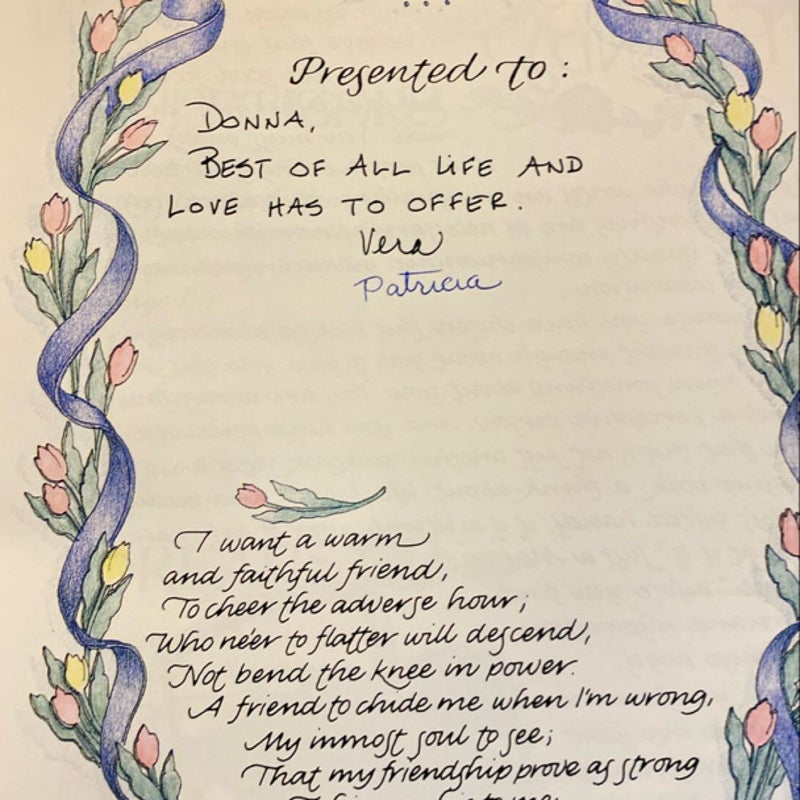 Presented to:
DONNA,
BEST OF ALL LIFE AND
LOVE HAS TO OFFER.
Vera
Patricia
I want a warm
and faithful friend,
To cheer the adverse hour;
Who ne'er to flatter will descend,
Not bend the knee in power.
A friend to chide me when I'm wrong,
My inmost soul to see;
That my friendship prove as strong